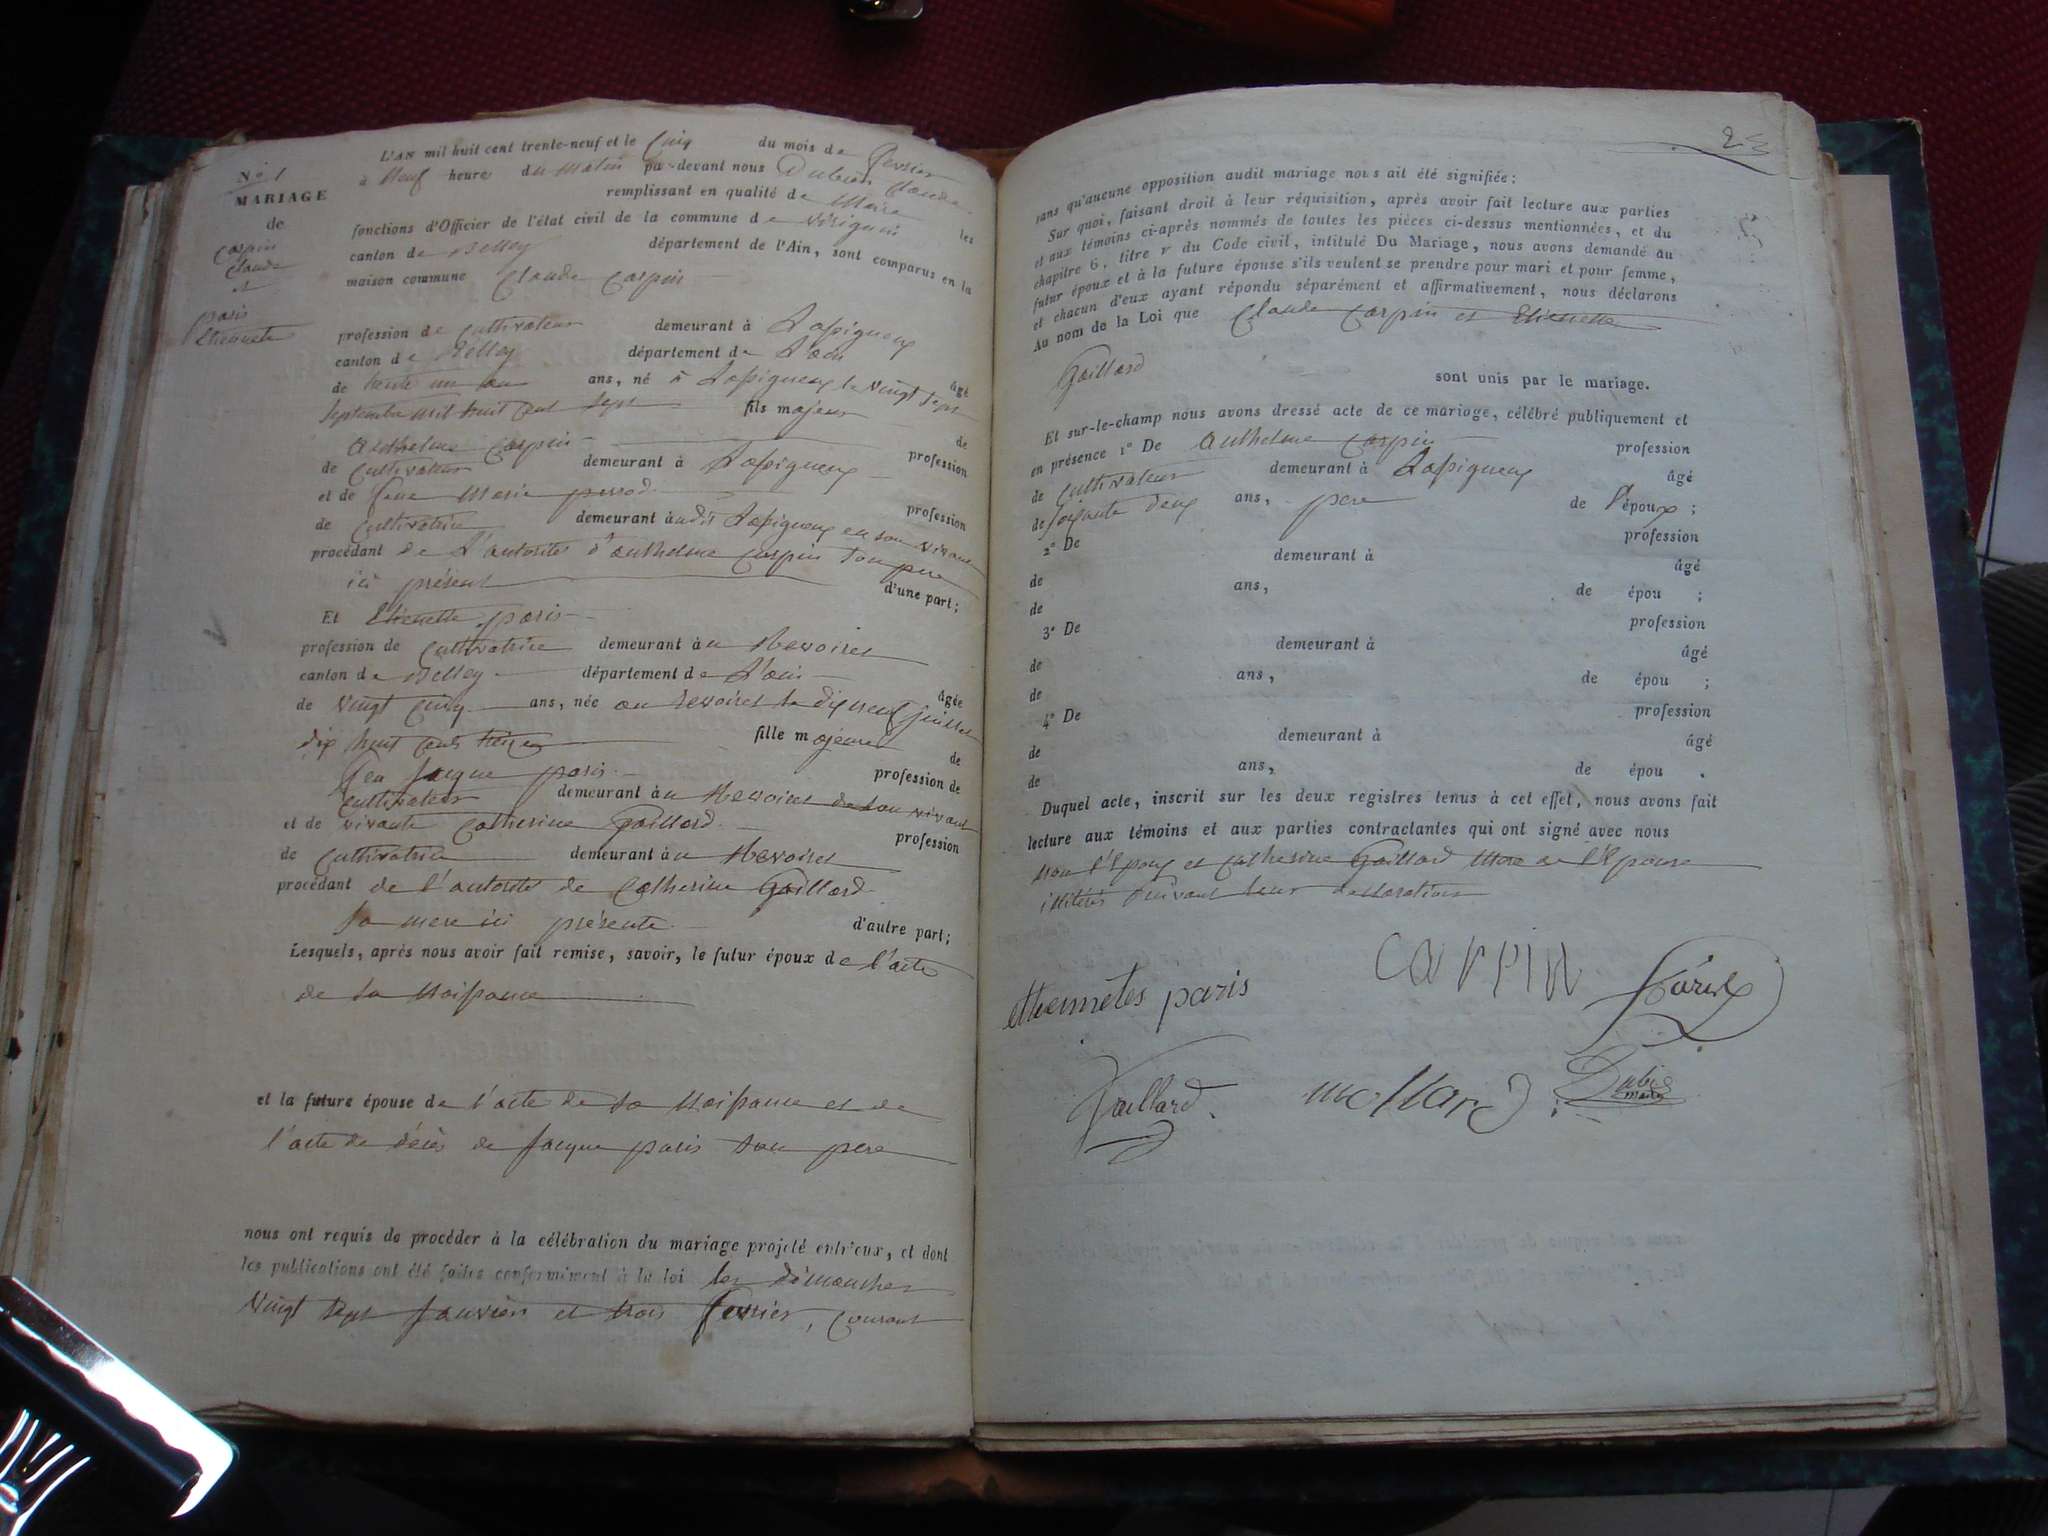 No 1
MARIAGE
de
Carpin
Claude
et
paris
Etiennette
L'AN mil huit cent trente-neuf et le Cinq du mois de fevrier
à Neuf heure du Matin par-devant nous Dubien Claude
remplissant en qualité de Maire les
fonctions d'Officier de l'état civil de la commune de Virignin
canton de Belley département de l'Ain, sont comparus en la
maison commune Claude Carpin
profession de Cultivateur demeurant à Lassigneux
canton de Belley département de L'ain âgé
de trente un ans, né à Lassigneux le Vingt sept
Septembre mil huit cent sept fils majeur de
Anthelme Carpin profession
de Cultivateur demeurant à Lassigneux
et de feue Marie perrod profession
de Cultivatrice demeurant audit Lassigneux en son vivant
procédant de L'autorité d'anthelme Carpin son pere
ici présent d'une part;
Et Etienette paris
profession de Cultivatrice demeurant au Revoiret
canton de Belley département de L'ain âgée
de Vingt Cinq ans, née au Revoiret le dix neuf Juillet
dix huit cent treize fille majeure de
feu Jacque paris profession de
Cultivateur demeurant au Revoiret de son vivant
et de vivante Catherine Gaillard profession
de Cultivatrice demeurant au Revoiret
procédant de l'autorité de Catherine Gaillard
sa mere ici présente d'autre part;
Lesquels, après nous avoir fait remise, savoir, le futur époux de l'acte
de sa Naissance
et la future épouse de l'acte de sa Naissance et de
l'acte de décès de Jacque paris son pere
nous ont requis de procéder à la célébration du mariage projeté entr'eux, et dont
les publications ont été faites conformément à la loi les dimanches
Vingt sept Janvier et trois fevrier, courant
2
sans qu'aucune opposition audit mariage nous ait été signifiée:
Sur quoi, faisant droit à leur réquisition, après avoir fait lecture aux parties
et aux témoins ci-après nommés de toutes les pièces ci-dessus mentionnées, et du
chapitre 6, titre v du Code civil, intitulé Du Mariage, nous avons demandé au
futur époux et à la future épouse s'ils veulent se prendre pour mari et pour femme,
et chacun d'eux ayant répondu séparément et affirmativement, nous déclarons
Au nom de la Loi que Claude Carpin et Etienette
Gaillard sont unis par le mariage.
Et sur-le-champ nous avons dressé acte de ce mariage, célébré publiquement et
en présence 1° De Anthelme Carpin profession
de Cultivateur demeurant à Lassigneux âgé
de soixante deux ans, pere de l'époux;
2° De profession
de demeurant à âgé
de ans, de épou ;
3° De profession
de demeurant à âgé
de ans, de épou ;
4° De profession
de demeurant à âgé
de ans, de épou .
Duquel acte, inscrit sur les deux registres tenus à cet effet, nous avons fait
lecture aux témoins et aux parties contractantes qui ont signé avec nous
non l'Epoux et Catherine Gaillard Mere de l'Epouse
illitérés suivant leur declaration
CARPIN
ethennetes paris
Gaillard
mollard
Dubien
maire